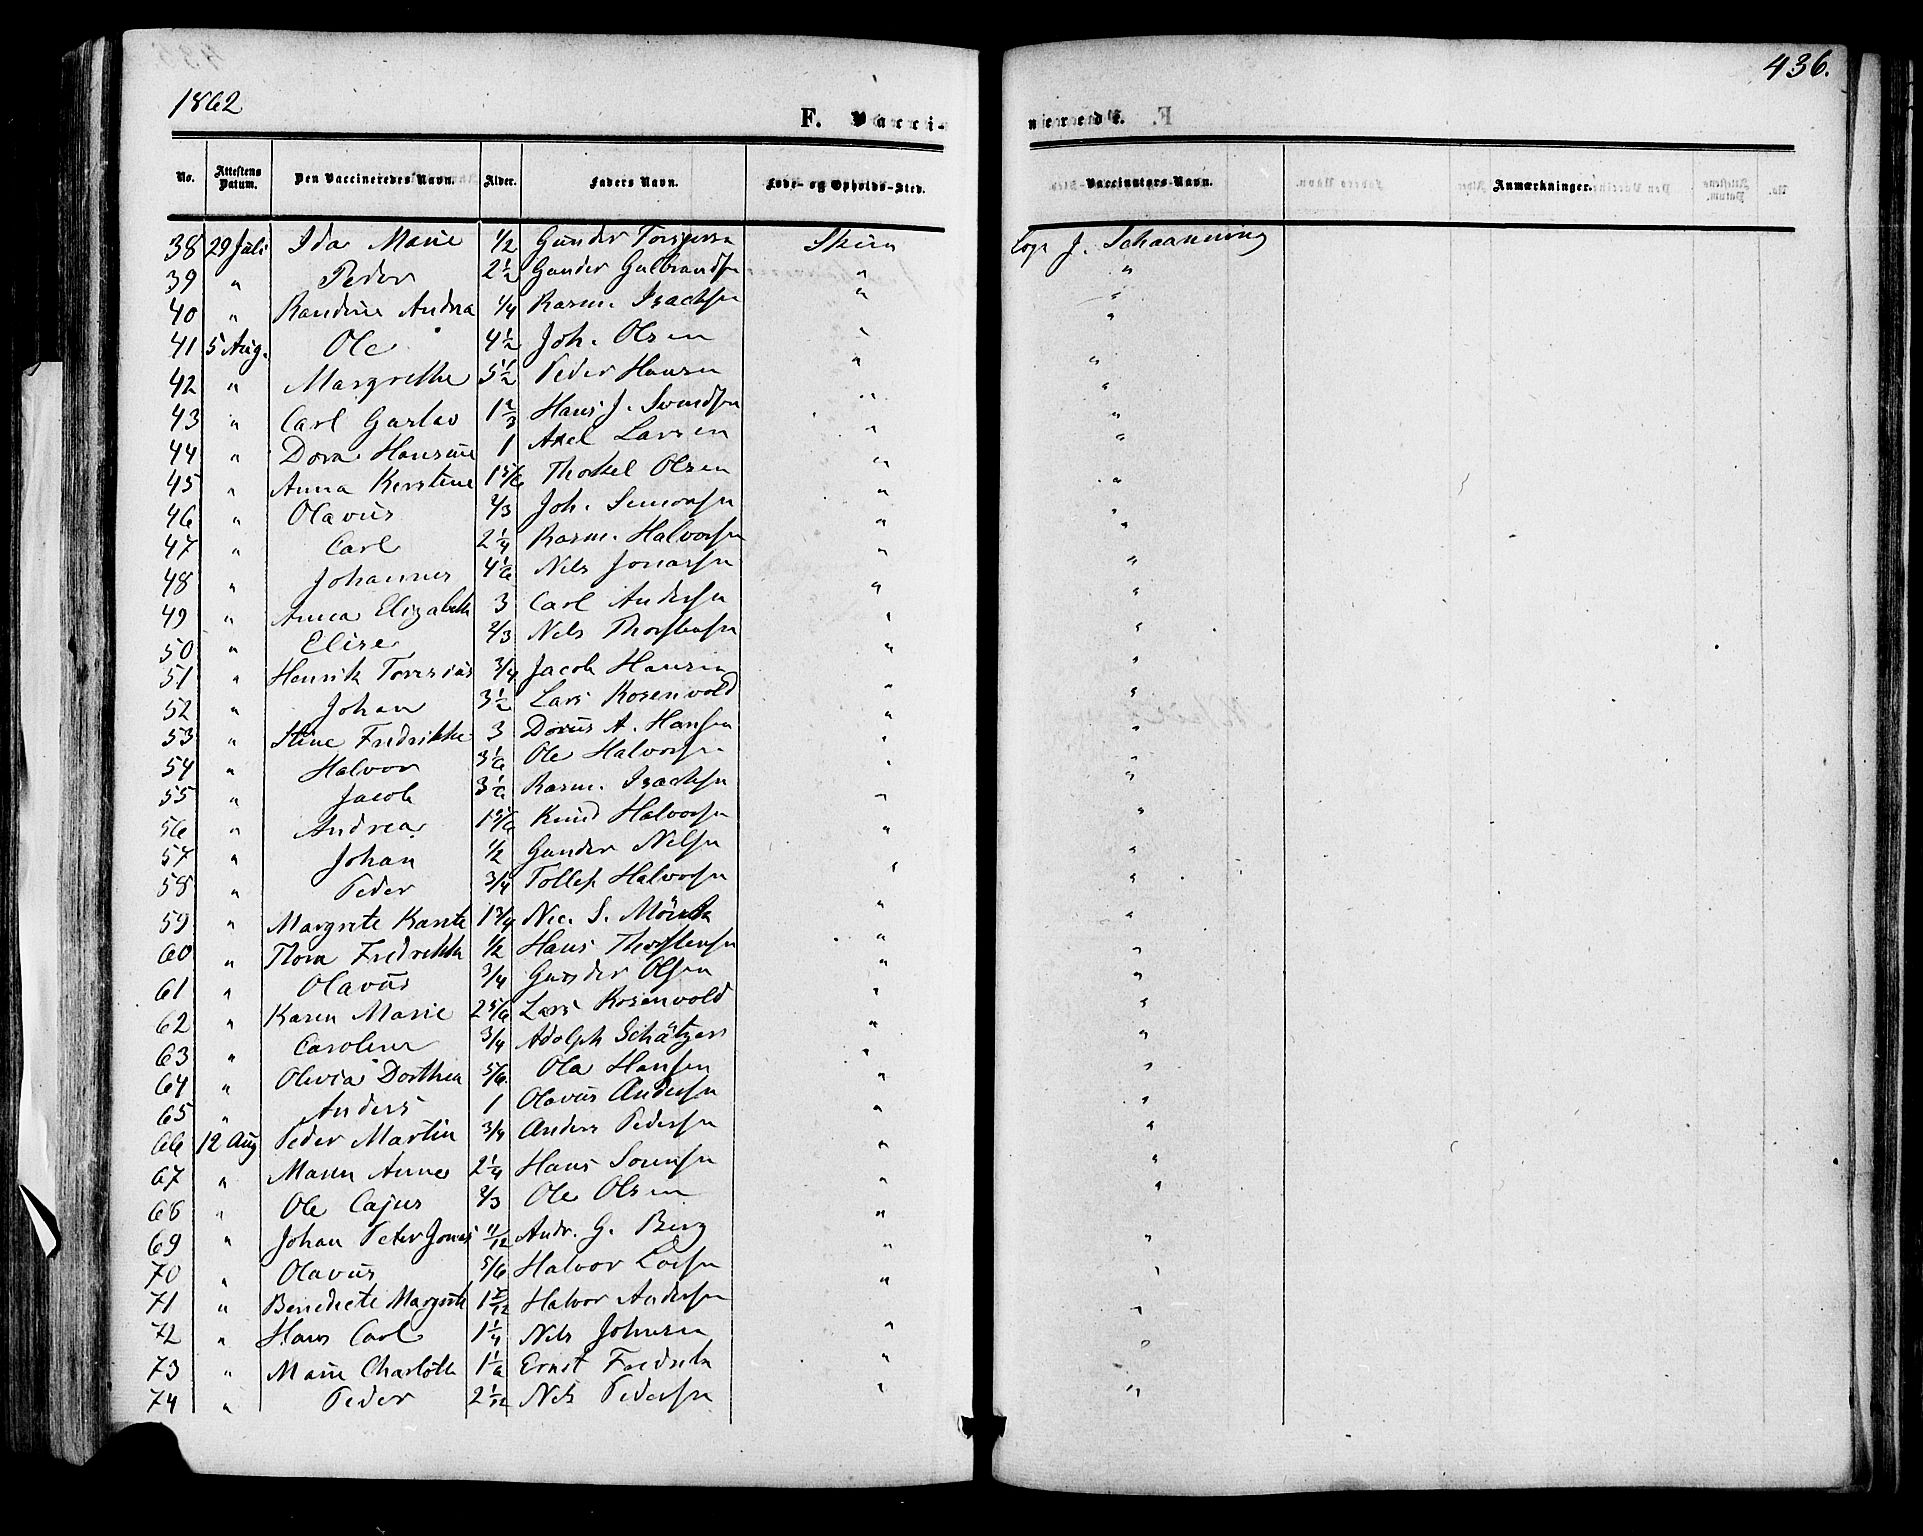 1862
436.
F. Vacci-
nerede.
No. Attestens Datum. Den Vaccineredes Navn. Alder. Faders Navn. Føde- og Opholds-Sted. Vaccinators-Navn. Anmærkninger.
38 29 Juli Ida Marie 1/2 Gunder Torgersen Skien J. Schaanning
39 " Peder 2 1/2 Gunder Gulbrandsen " "
40 " Randine Andrea 1/4 Rasm. Isachsen " "
41 5 Aug. Ole 4 1/2 Joh. Olsen " "
42 " Margrethe 5 1/2 Peder Hansen " "
43 " Carl Gustav 1 2/3 Hans J. Svendsen " "
44 " Dora Hansine 1 Axel Larsen " "
45 " Anna Kerstine 1 5/6 Thorkel Olsen " "
46 " Olavus 2/3 Joh. Simonsen " "
47 " Carl 2 1/4 Rasm. Halvorsen " "
48 " Johannes 4 1/6 Nils Jonassen " "
49 " Anna Elizabeth 3 Carl Andersen " "
50 " Elise 2/3 Nils Thorstensen " "
51 " Henrik 3/4 Jacob Hansen " "
52 " Johan 3 1/2 Lars Rosenvold " "
53 " Stine Fredrikke 3 Dorus A. Hansen " "
54 " Halvor 3 1/6 Ole Halvorsen " "
55 " Jacob 3 1/6 Rasm. Isachsen " "
56 " Andrea 1 5/6 Knud Halvorsen " "
57 " Johan 1/2 Gunder Nilsen " "
58 " Peder 3/4 Tollef Halvorsen " "
59 " Margrete Karste 1 3/4 Nic. S. " "
60 " Thora Fredrikke 1/2 Hans Thorstensen " "
61 " Olavus 3/4 Gunder Olsen " "
62 " Karen Marie 2 5/6 Lars Rosenvold " "
63 " Caroline 3/4 Adolph Schätzer " "
64 " Olivia Dorthea 5/6 Ole Hansen " "
65 " Anders 1 Olavus Andersen " "
66 12 Aug Peder Martin 3/4 Anders Pedersen " "
67 " Maren Anne 2 1/4 Hans Sorensen " "
68 " Ole Cajus 2/3 Ole Olsen " "
69 " Johan Peter Jonas 11/12 Andr. G. Berg " "
70 " Olavus 5/6 Halvor " "
71 " Benedicte Margrete Halvor Andersen " "
72 " Hans Carl 1 1/4 Nils Johnsen " "
73 " Marie Charlotte 1 1/6 Ernst " "
74 " Peder 2 1/12 Nils Pedersen " "